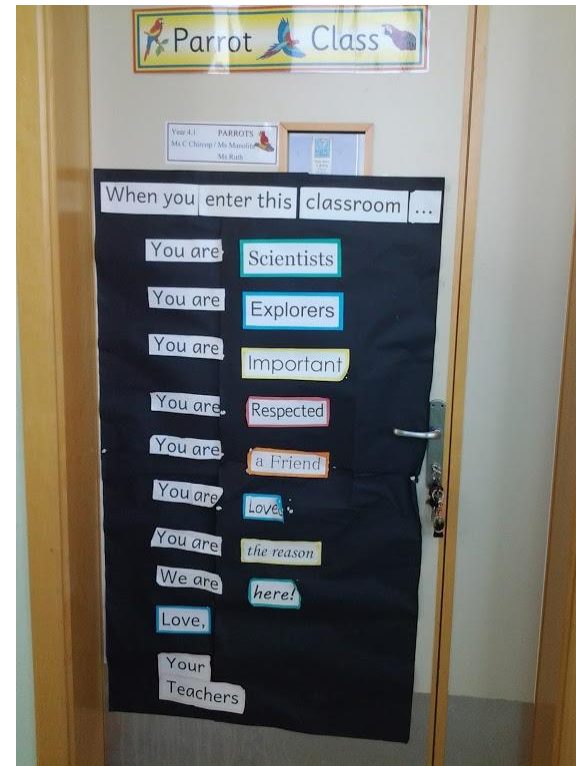 Parrot Class
Year 4.1 PARROTS
Ms C Chircop / Ms Manolita
Ms Ruth
When you enter this classroom ...
You are Scientists
You are Explorers
You are Important
You are Respected
You are a Friend
You are Love
You are the reason
We are here!
Love,
Your
Teachers